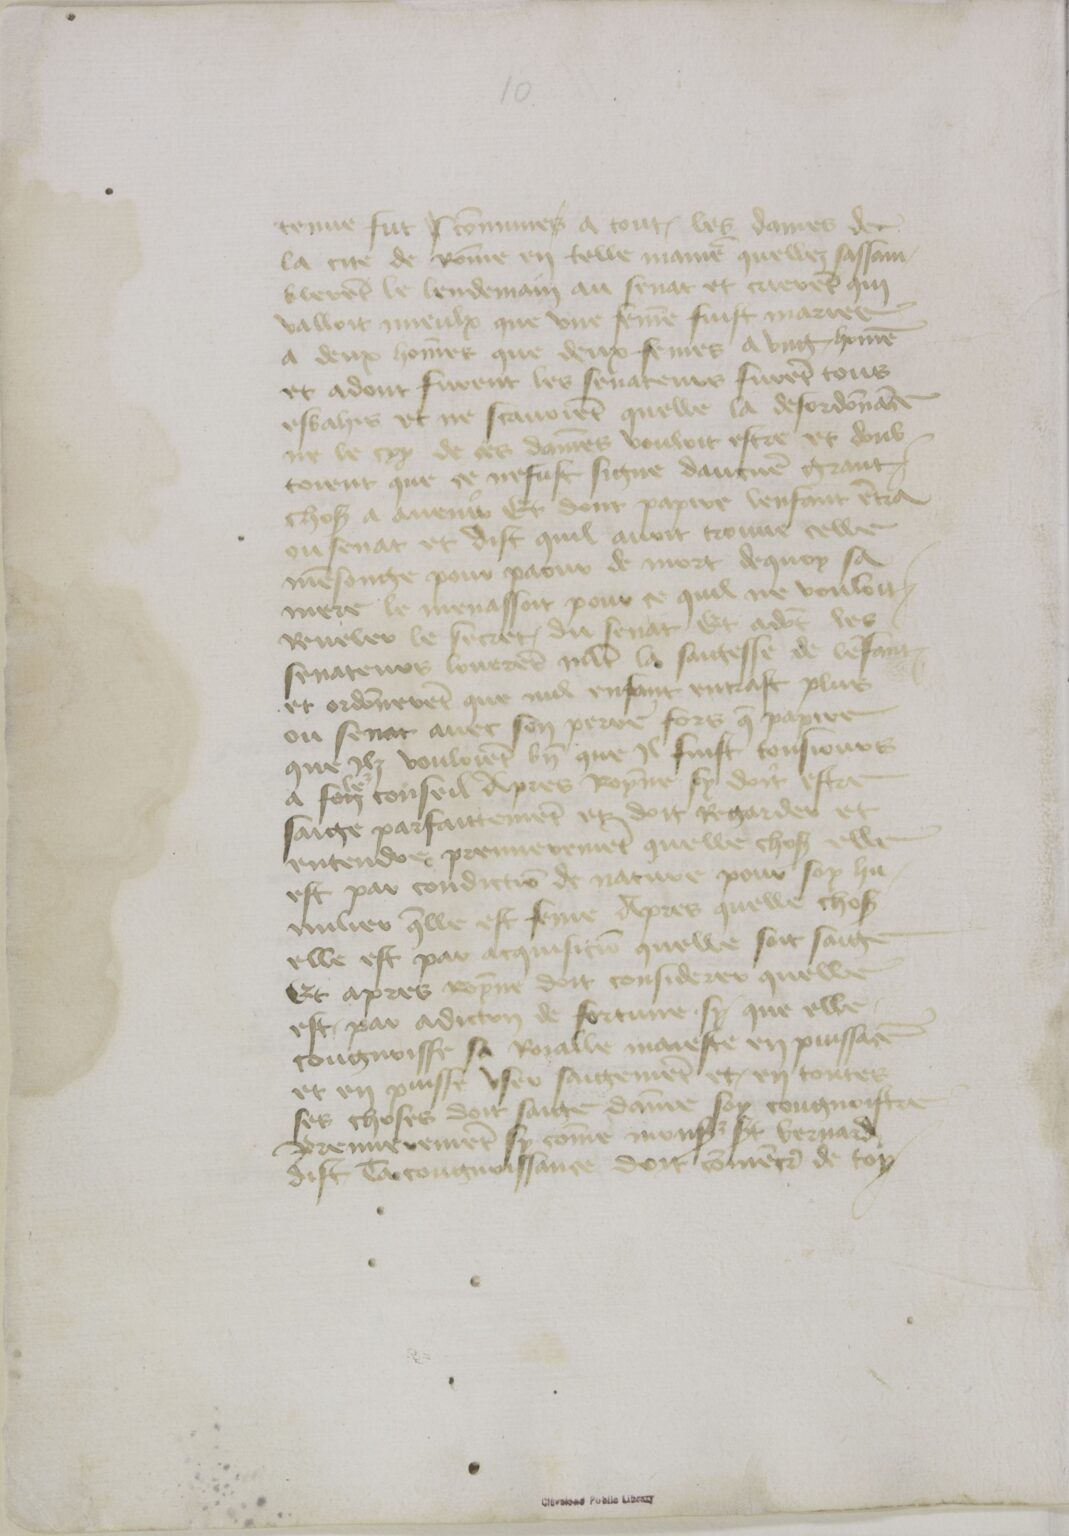 10
tenue fut p cōmunes a tout les dames de
la cite de Rōme en telle manīe quelles sassam
blerēt le lendemain au senat et crierēt qui
valloit mieulx que vne fēme fuist mariee
a deux hom̄es que deux femes a vng homē
et adont furent les senateurs furēt tous
esbahis et ne scauoiēt quelle la desordōnāce
ne le cry de ces dam̄es vouloit estre et doub
toient que ce ne fust signe daucūe grant
chose a auenir Et dont papire lenfant ētra
ou senat et dist quil auoit trouue celle
mēsonge pour paour de mort dequoy sa
mere le menassoit pour ce quil ne vouloit
Reueler le secret du senat Et adōt les
senateurs louerēt la saigesse de lēfant
et ordōnerēt que nul enfant entrast plus
ou senat auec son perre fors q̄ papire
que Ilz vouloiēt bn̄ que Il fuist tousiours
a leʳ conseil Apres Royne sy doit estre
saige parfaittemēt et doit Regarder et
entendre premieremēt quelle chose elle
est par condictiō de nature pour soy hu
milier q̄lle est feme Apres quelle chose
elle est par acquisiciō quelle soit saige
Et apres Royne doit considerer quelle
est par adicion de fortune sy que elle
congnoisse sa Roialle maieste en puissāce
et en puisse vser saigemēt et en toutes
ses choses doit saige dam̄e soy congnoistre
premieremēt sy cōme monsʳ sᵗ bernard
dist Ta congnoissance doit cōmēcer de toy
Cleveland Public Library